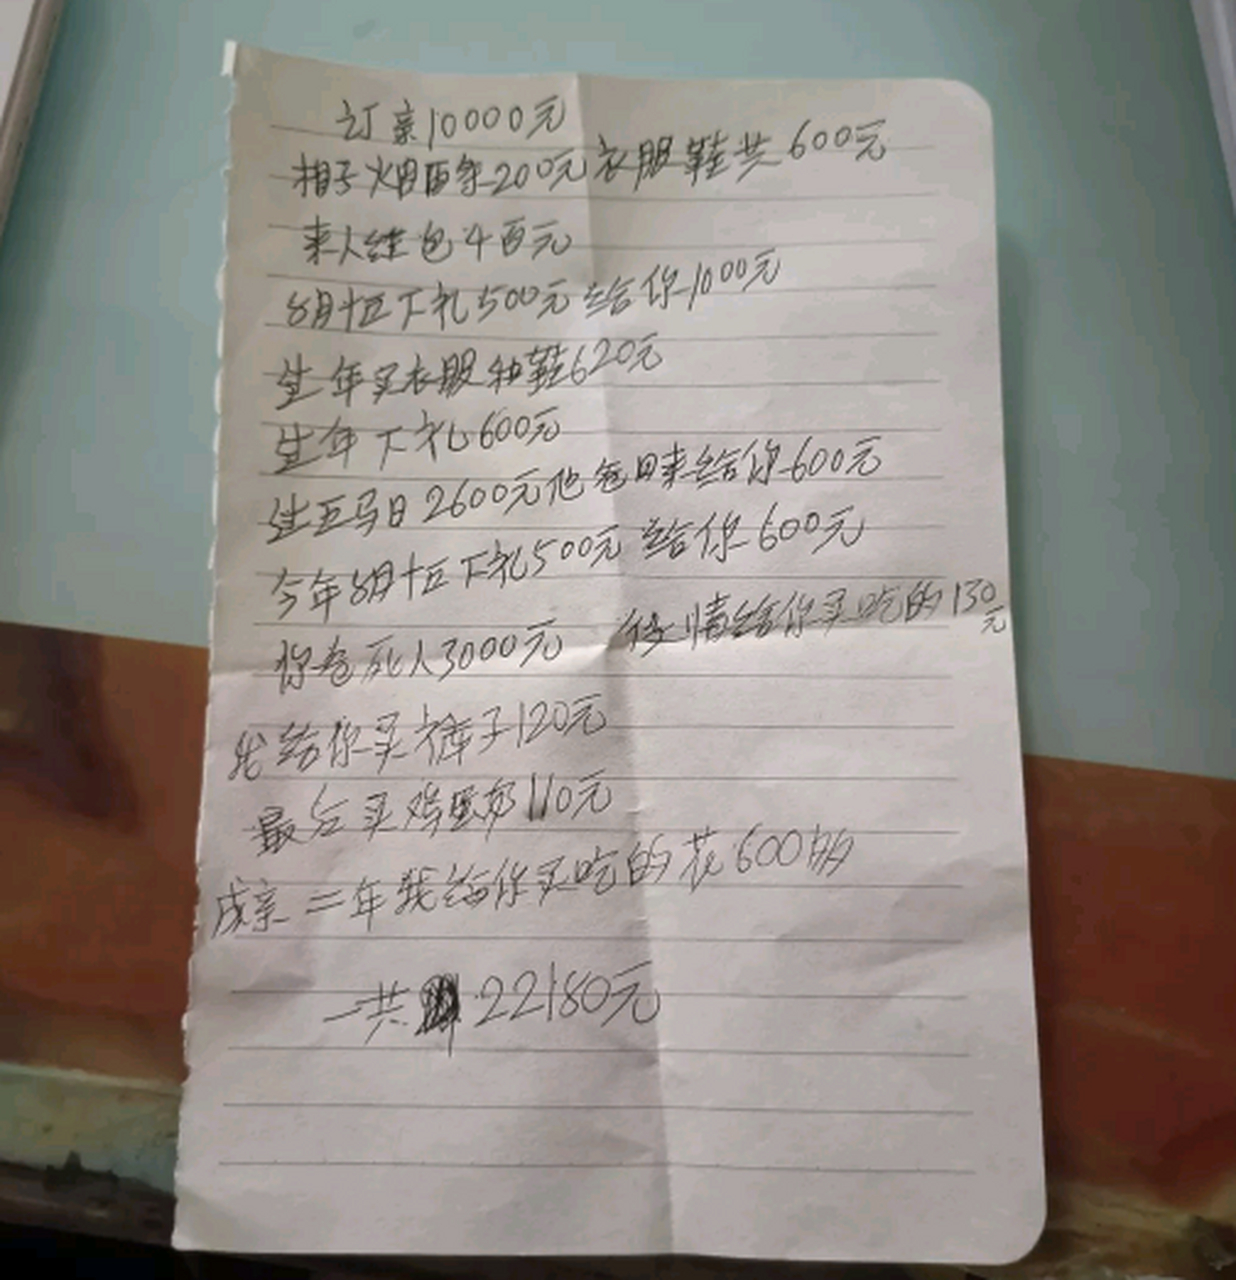 订亲10000元
相子烟两条200元衣服鞋共600元
来人红包4百元
8月十五下礼500元给你1000元
年买衣服和鞋620元
年下礼600元
2600元他爸回来给你600元
今年8月十五下礼500元给你600元
你爸死人3000元 情给你买吃的130元
我给你买裤子120元
最后买鸡蛋奶110元
成亲二年我给你买吃的花600多
一共22180元